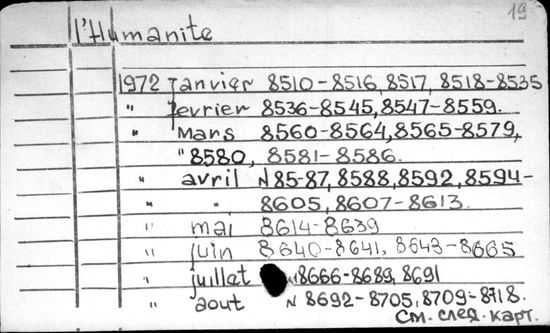 19
l'Humanite
1972 Janvier 8510-8516, 8517, 8518-8535
" fevrier 8536-8545, 8547-8559.
" Mars 8560-8564, 8565-8579,
" 8580, 8581-8586.
" avril N 85-87, 8588, 8592, 8594-
" " 8605, 8607-8613.
" mai 8614-8639
" juin 8640-8641, 8643-8665
" juillet 8666-8689, 8691
" aout N 8692-8705, 8709-8718.
См. след. карт.